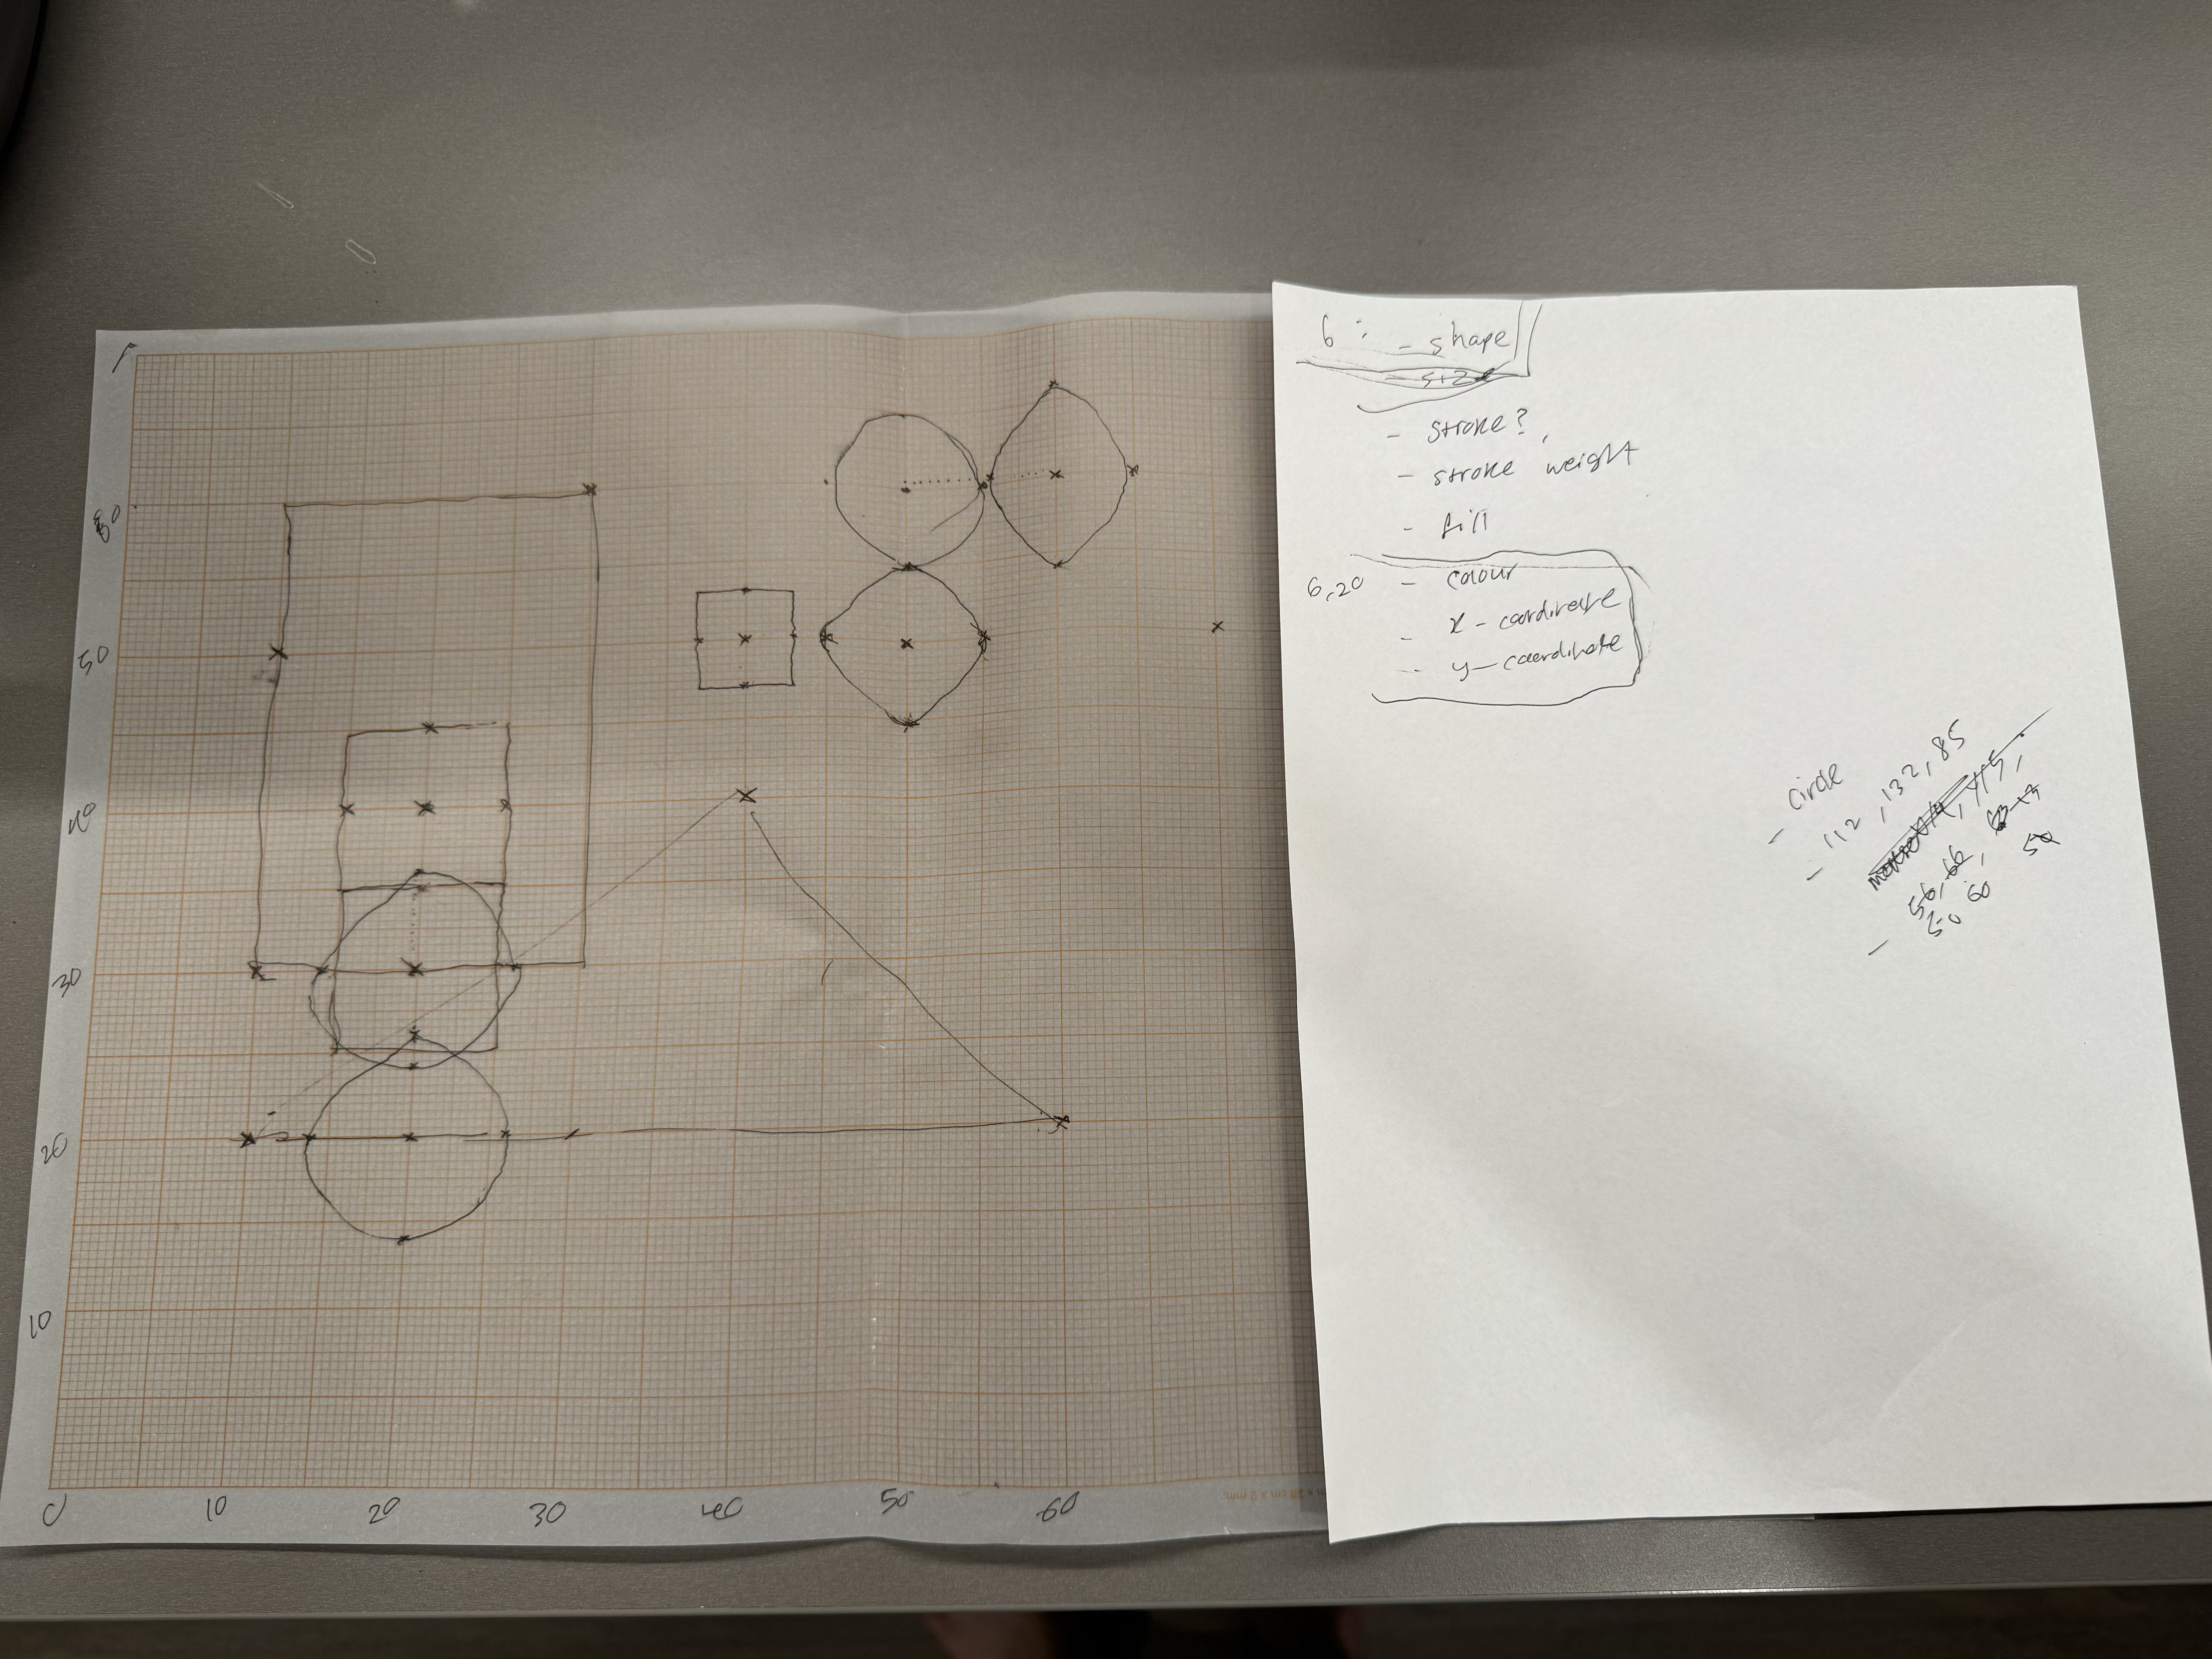 60
50
40
30
20
10
0 10 20 30 40 50 60
6 : - shape
- size
- stroke?
- stroke weight
- fill
6,20 - colour
- x - cordinate
- y - coerdinate
- circle
- 112, 132, 85
56, 66,
- 50 60 50